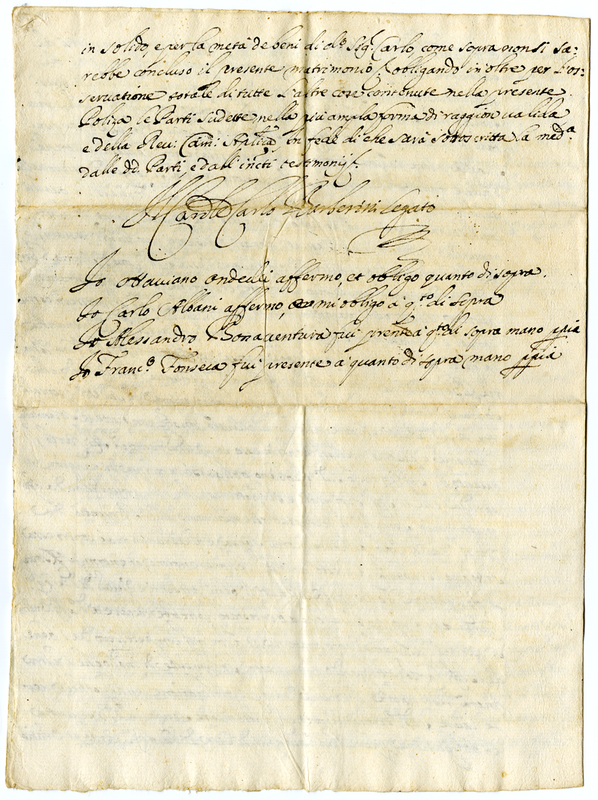 in solido, e per la metà de beni di do. Sigr. Carlo, come sopra non si sa-
rebbe concluso il presente matrimonio, obligando in oltre per l'os-
servatione totale di tutte l'altre cose contenute nella presente
Poliza le Parti sudette nella più ampla forma di raggion valida
e della Reu: Cam: Aplica, in fede di che sarà sottoscritta la meda
dalle dd. Parti, e dall' testimonij
Il Cardle Carlo Barberini Legato
Io Ottaviano affermo, et obligo quanto di sopra.
Io Carlo Albani affermo, e mi obligo a qto di sopra
Io Alessandro Bonaventura fui prente a qto di sopra mano ppia
Io Franco Fonseca fui presente a quanto di sopra mano ppia